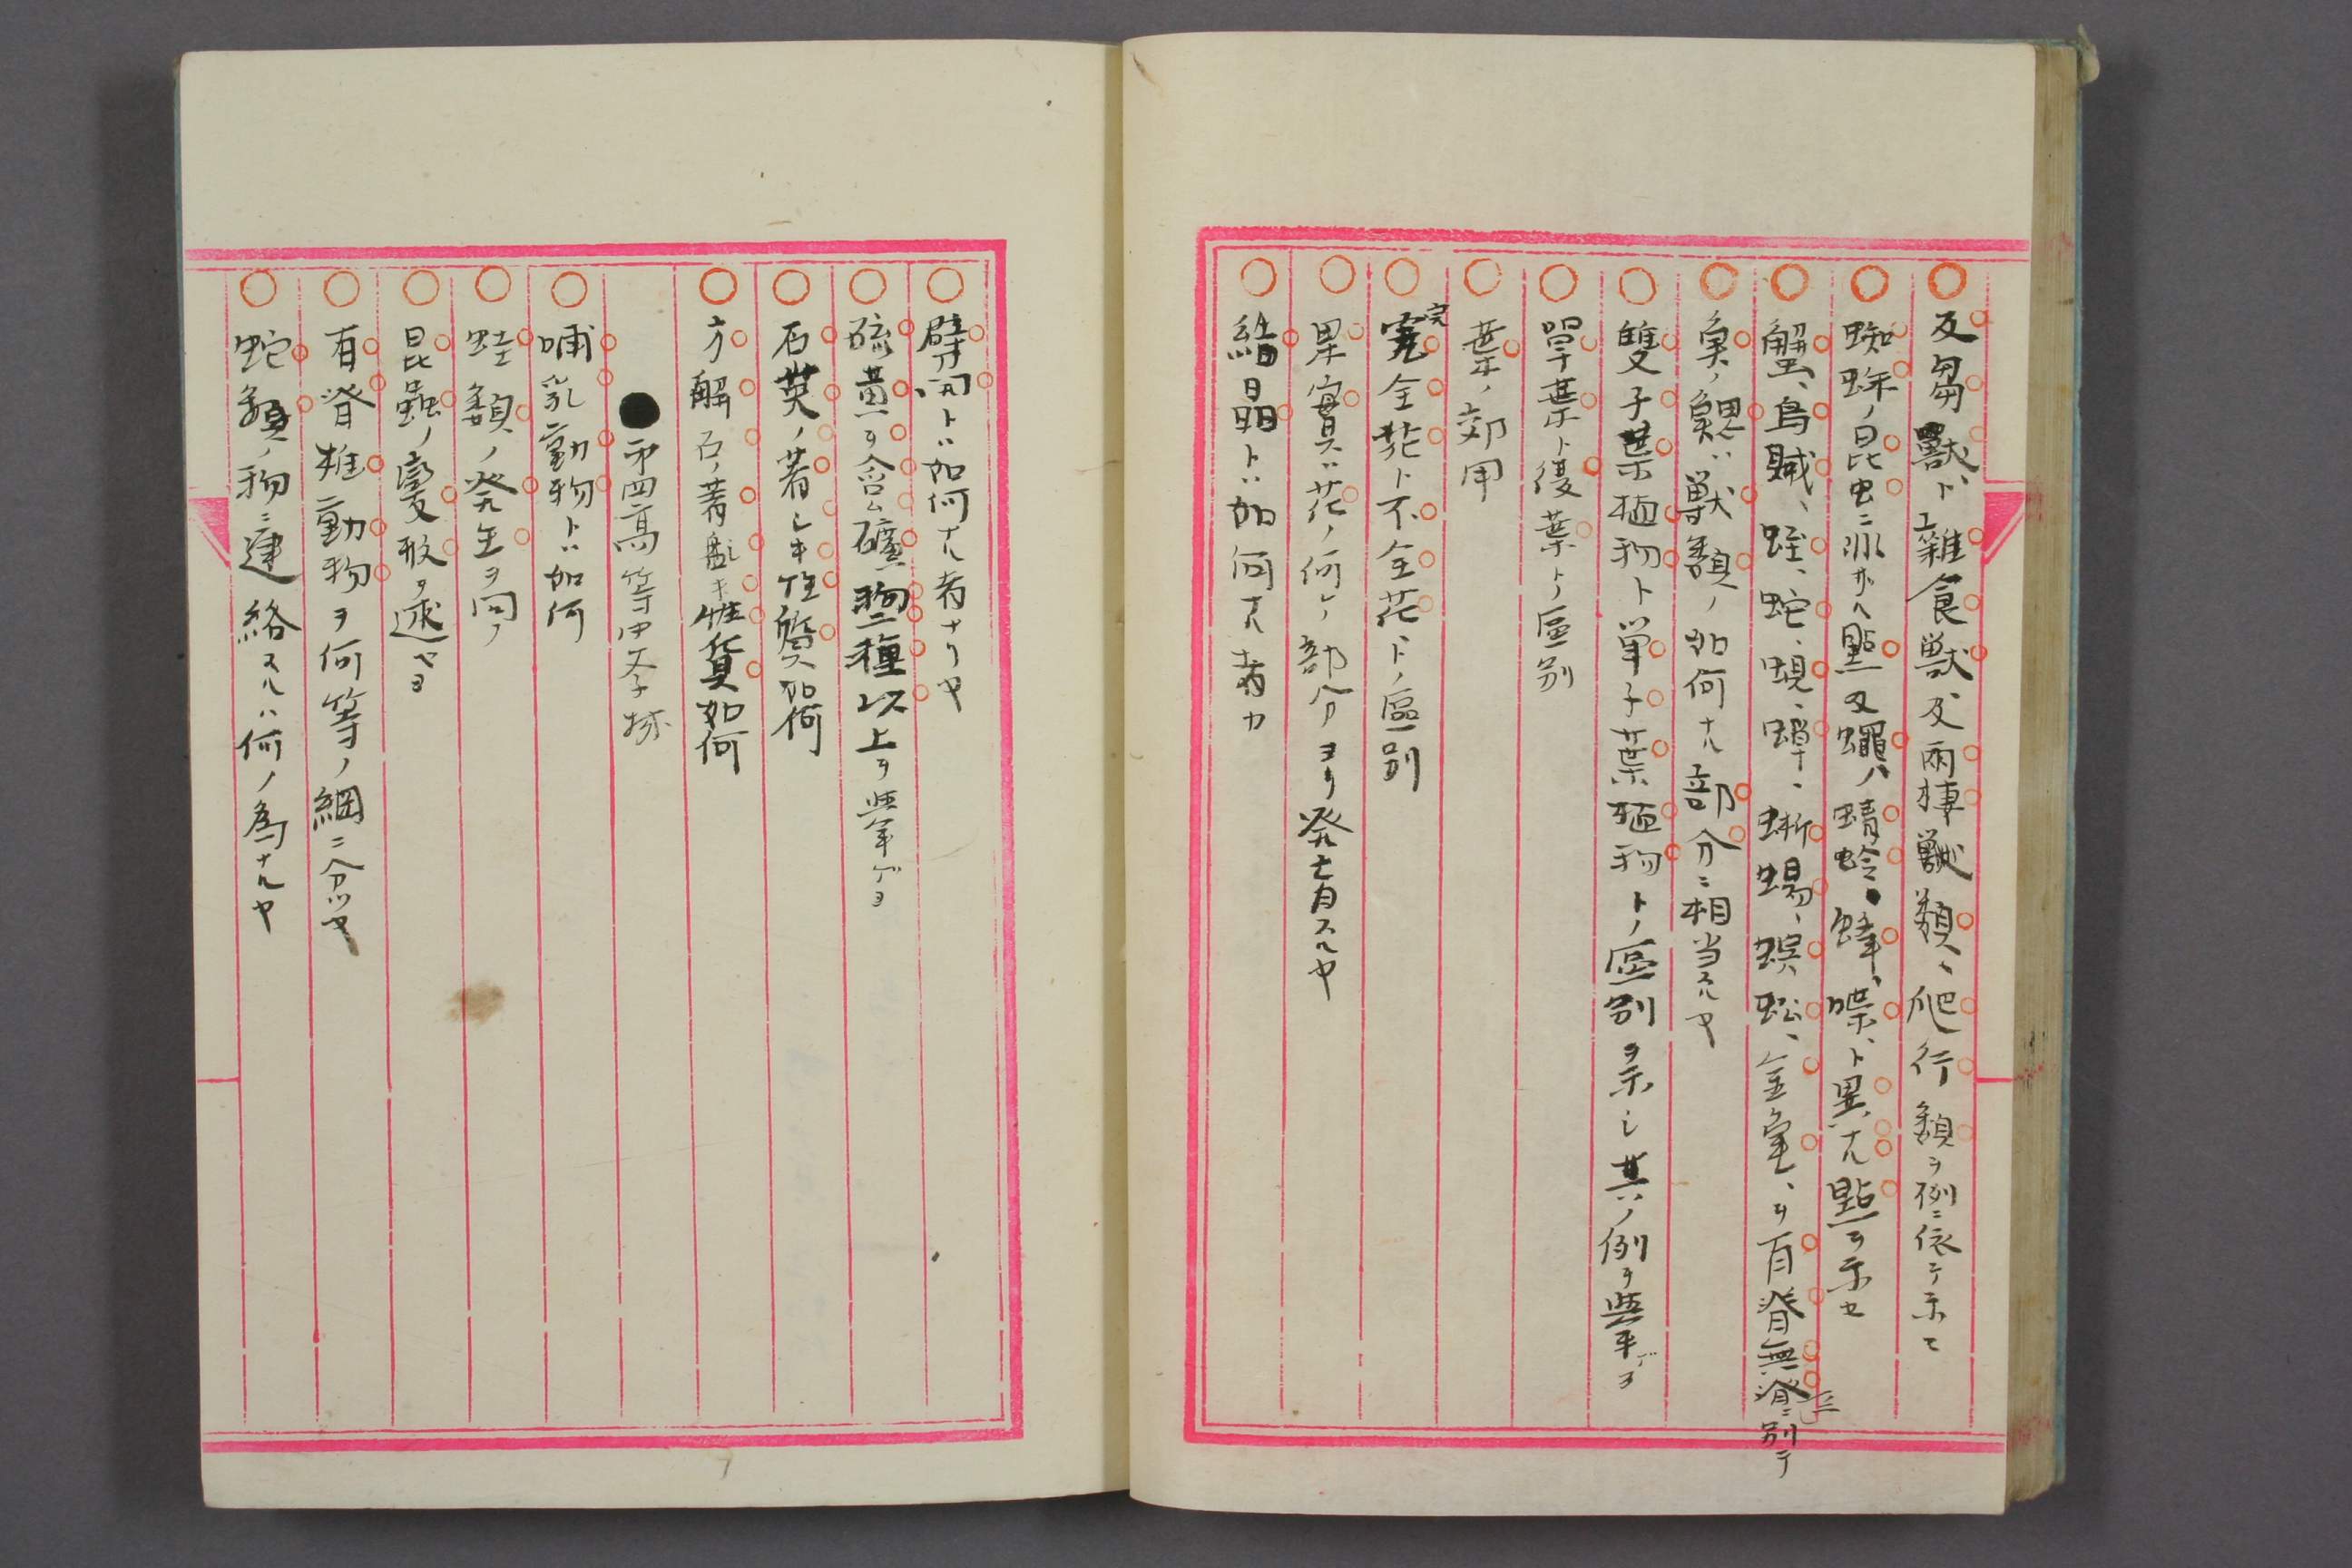 反芻獣ト、雑食獣及両棲獣類、爬行類ヲ例ニ依テ示セ
蜘蛛ノ昆虫ニ似サル點及蠅、蜻蛉、蜂、蝶、ト異ナル點ヲ示セ
蟹、烏賊、蛭、蛇、蜆、蟬、蜥蜴、蜈蚣、金魚、ヲ有脊無脊ニ別テ
魚ノ鰓ハ獣類ノ如何ナル部分ニ相当スルヤ
雙子葉植物ト単子葉植物トノ區別ヲ示シ其ノ例ヲ挙ゲヨ
單葉ト複葉トノ區別
葉ノ効用
完全花ト不全花トノ區別
果實ハ花ノ何レノ部分ヨリ発育スルヤ
結晶トハ如何ナル者カ
劈開トハ如何ナル者ナリヤ
硫黄ヲ含ム礦物二種以上ヲ挙ゲヨ
石英ノ著シキ性質如何
方解石ノ著シキ性質如何
●第四高等中学校
哺乳動物トハ如何
蛙類ノ発生ヲ問フ
昆蟲ノ変形ヲ述ベヨ
有脊椎動物ヲ何等ノ綱ニ分ツヤ
蛇類ノ物ニ連絡スルハ何ノ為ナルヤ